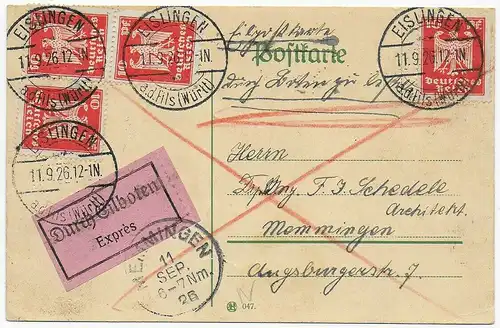 EISLINGEN
11.9.26.12-1N.
a.d.Fils (Württ)
EISLINGEN
11.9.26.12-1N.
a.d.Fils (Württ)
EISLINGEN
11.9.26.12-1N.
a.d.Fils (Württ)
EISLINGEN
11.9.26.12-1N.
Deutsches Reich
Deutsches Reich
Deutsches Reich
Eilpostkarte
Postkarte
durch Boten zu
Herrn
Dipl. Ing. F. J. Schedele
Architekt
Memmingen
Augsburgerstr. 7.
Durch Eilboten
Exprès
MEMMINGEN
11
SEP.
6-7 Nm.
26
H 047.